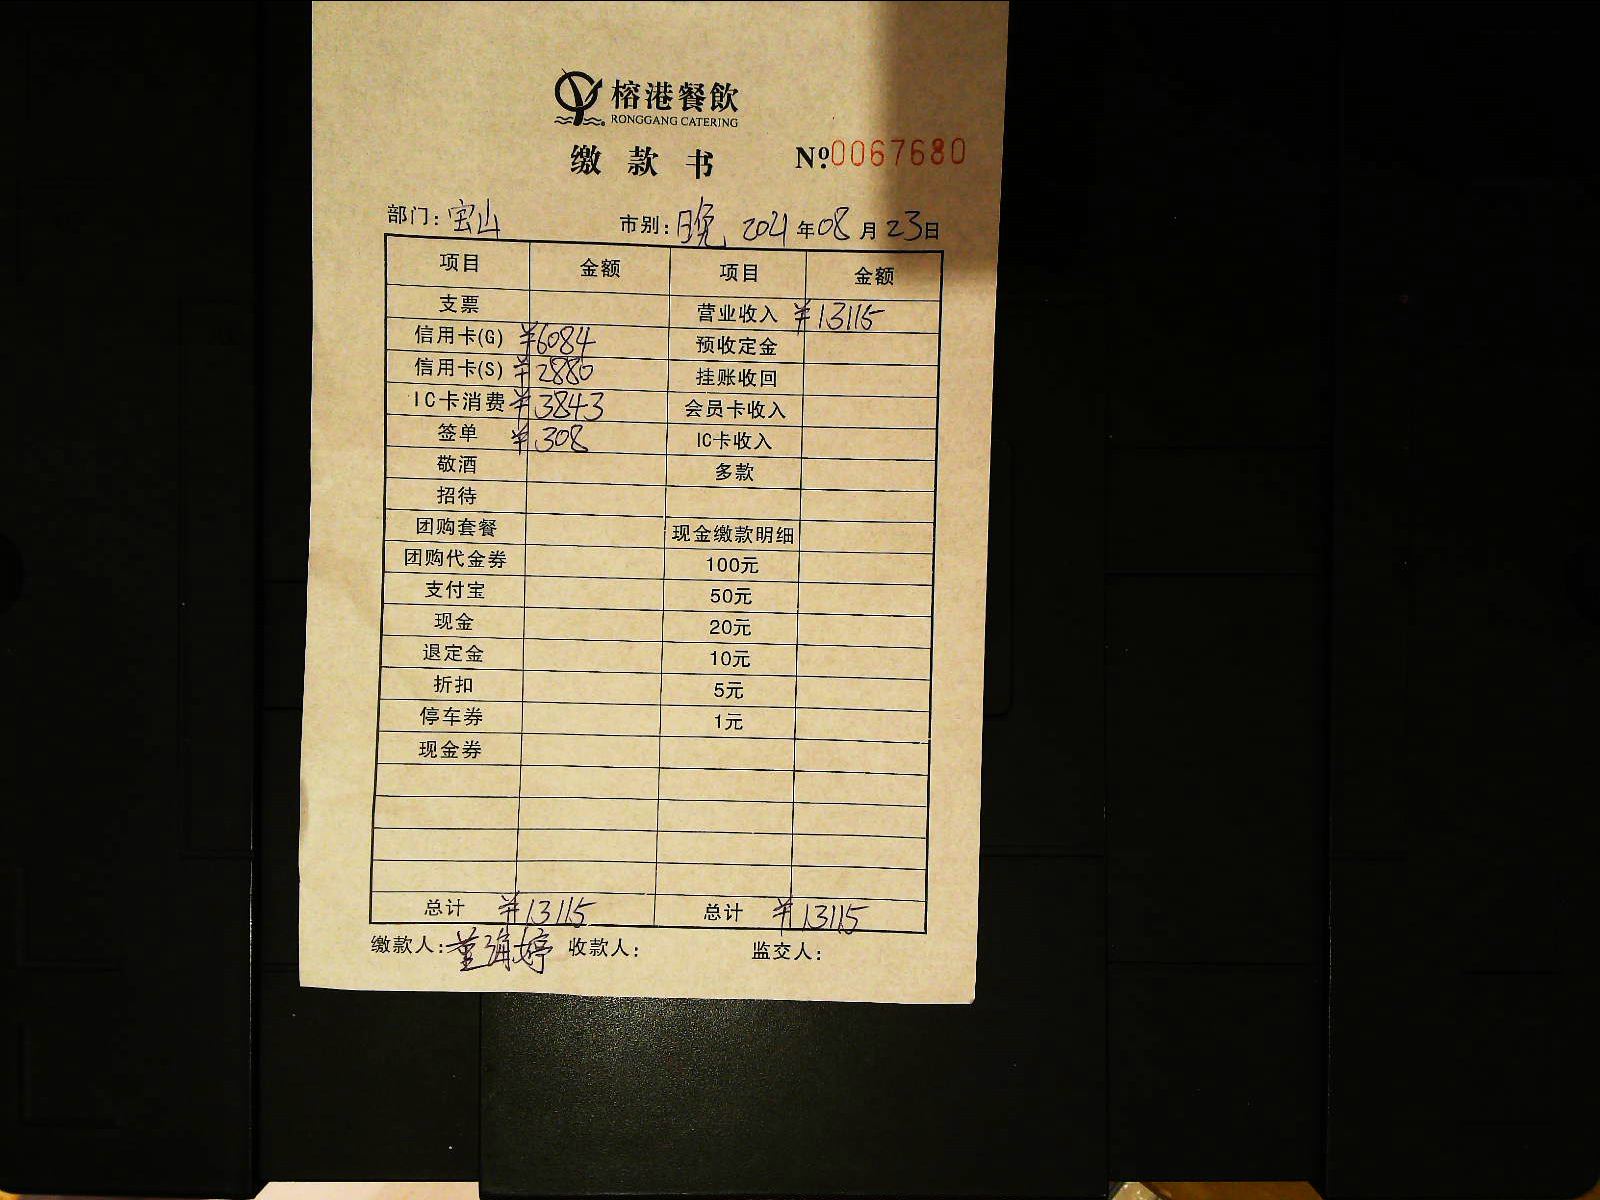 榕港餐飲
RONGGANG CATERING
缴款书 №0067680
部门：宝山 市别：晚 2021年08月23日
项目 金额 项目 金额
支票 营业收入 ¥13115
信用卡(G) ¥6084 预收定金
信用卡(S) ¥2880 挂账收回
IC卡消费 ¥3843 会员卡收入
签单 ¥308 IC卡收入
敬酒 多款
招待
团购套餐 现金缴款明细
团购代金券 100元
支付宝 50元
现金 20元
退定金 10元
折扣 5元
停车券 1元
现金券
总计 ¥13115 总计 ¥13115
缴款人：董海婷 收款人： 监交人：